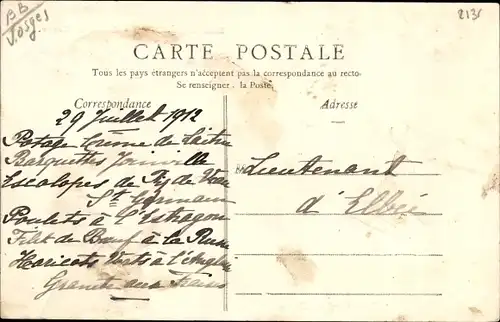 BB
Vosges
213r
CARTE POSTALE
Tous les pays étrangers n'acceptent pas la correspondance au recto.
Se renseigner à la Poste.
Correspondance
Adresse
29 Juillet 1912
Potage Crème de Laitue
Barquettes Joinville
Escalopes de Ris de Veau
St Germain
Poulets à l'Estragon
Filet de Bœuf à la
Haricots Verts à l'Anglaise
aux Fraises
Lieutenant
d'Elbée